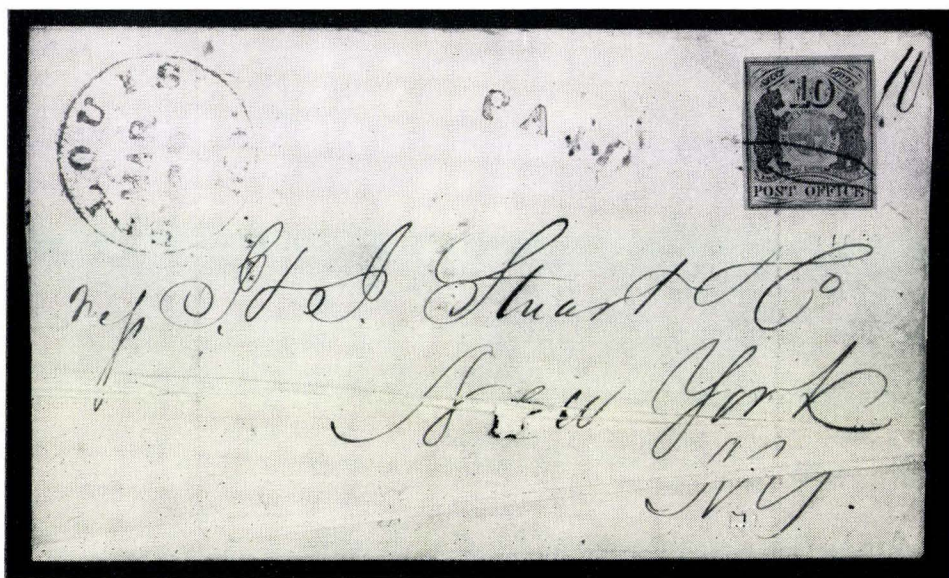 LOUIS
MAR
PA
10
10
POST OFFICE
Mess J. & J. Stuart & Co
New York
N.Y.